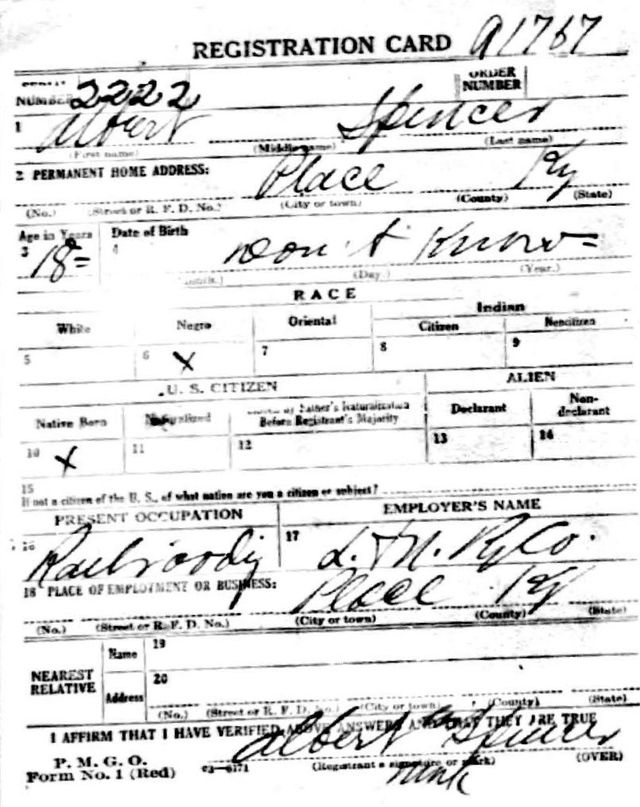 REGISTRATION CARD A1767
NUMBER 2222 ORDER NUMBER
1 Albert Spencer
(First name) (Middle name) (Last name)
2 PERMANENT HOME ADDRESS: Place Ky
(No.) (Street or R. F. D. No.) (City or town) (County) (State)
Age in Years Date of Birth
3 18= 4 Don't Know=
(Day.) (Year.)
RACE
White Negro Oriental Indian
Citizen Noncitizen
5 6 X 7 8 9
U. S. CITIZEN ALIEN
Native Born Naturalized Father's Naturalization Before Registrant's Majority Declarant Non-declarant
10 X 11 12 13 14
15
If not a citizen of the U. S., of what nation are you a citizen or subject?
PRESENT OCCUPATION EMPLOYER'S NAME
16 Railroading 17 L. & N. Ry Co.
18 PLACE OF EMPLOYMENT OR BUSINESS: Place Ky
(No.) (Street or R. F. D. No.) (City or town) (County) (State)
NEAREST RELATIVE
Name 19
Address 20
(No.) (Street or R. F. D. No.) (City or town) (County) (State)
I AFFIRM THAT I HAVE VERIFIED ABOVE ANSWERS AND THAT THEY ARE TRUE
P. M. G. O.
Form No. 1 (Red) 03—6171 Albert Spencer
(Registrant's signature or mark) (OVER)
mark